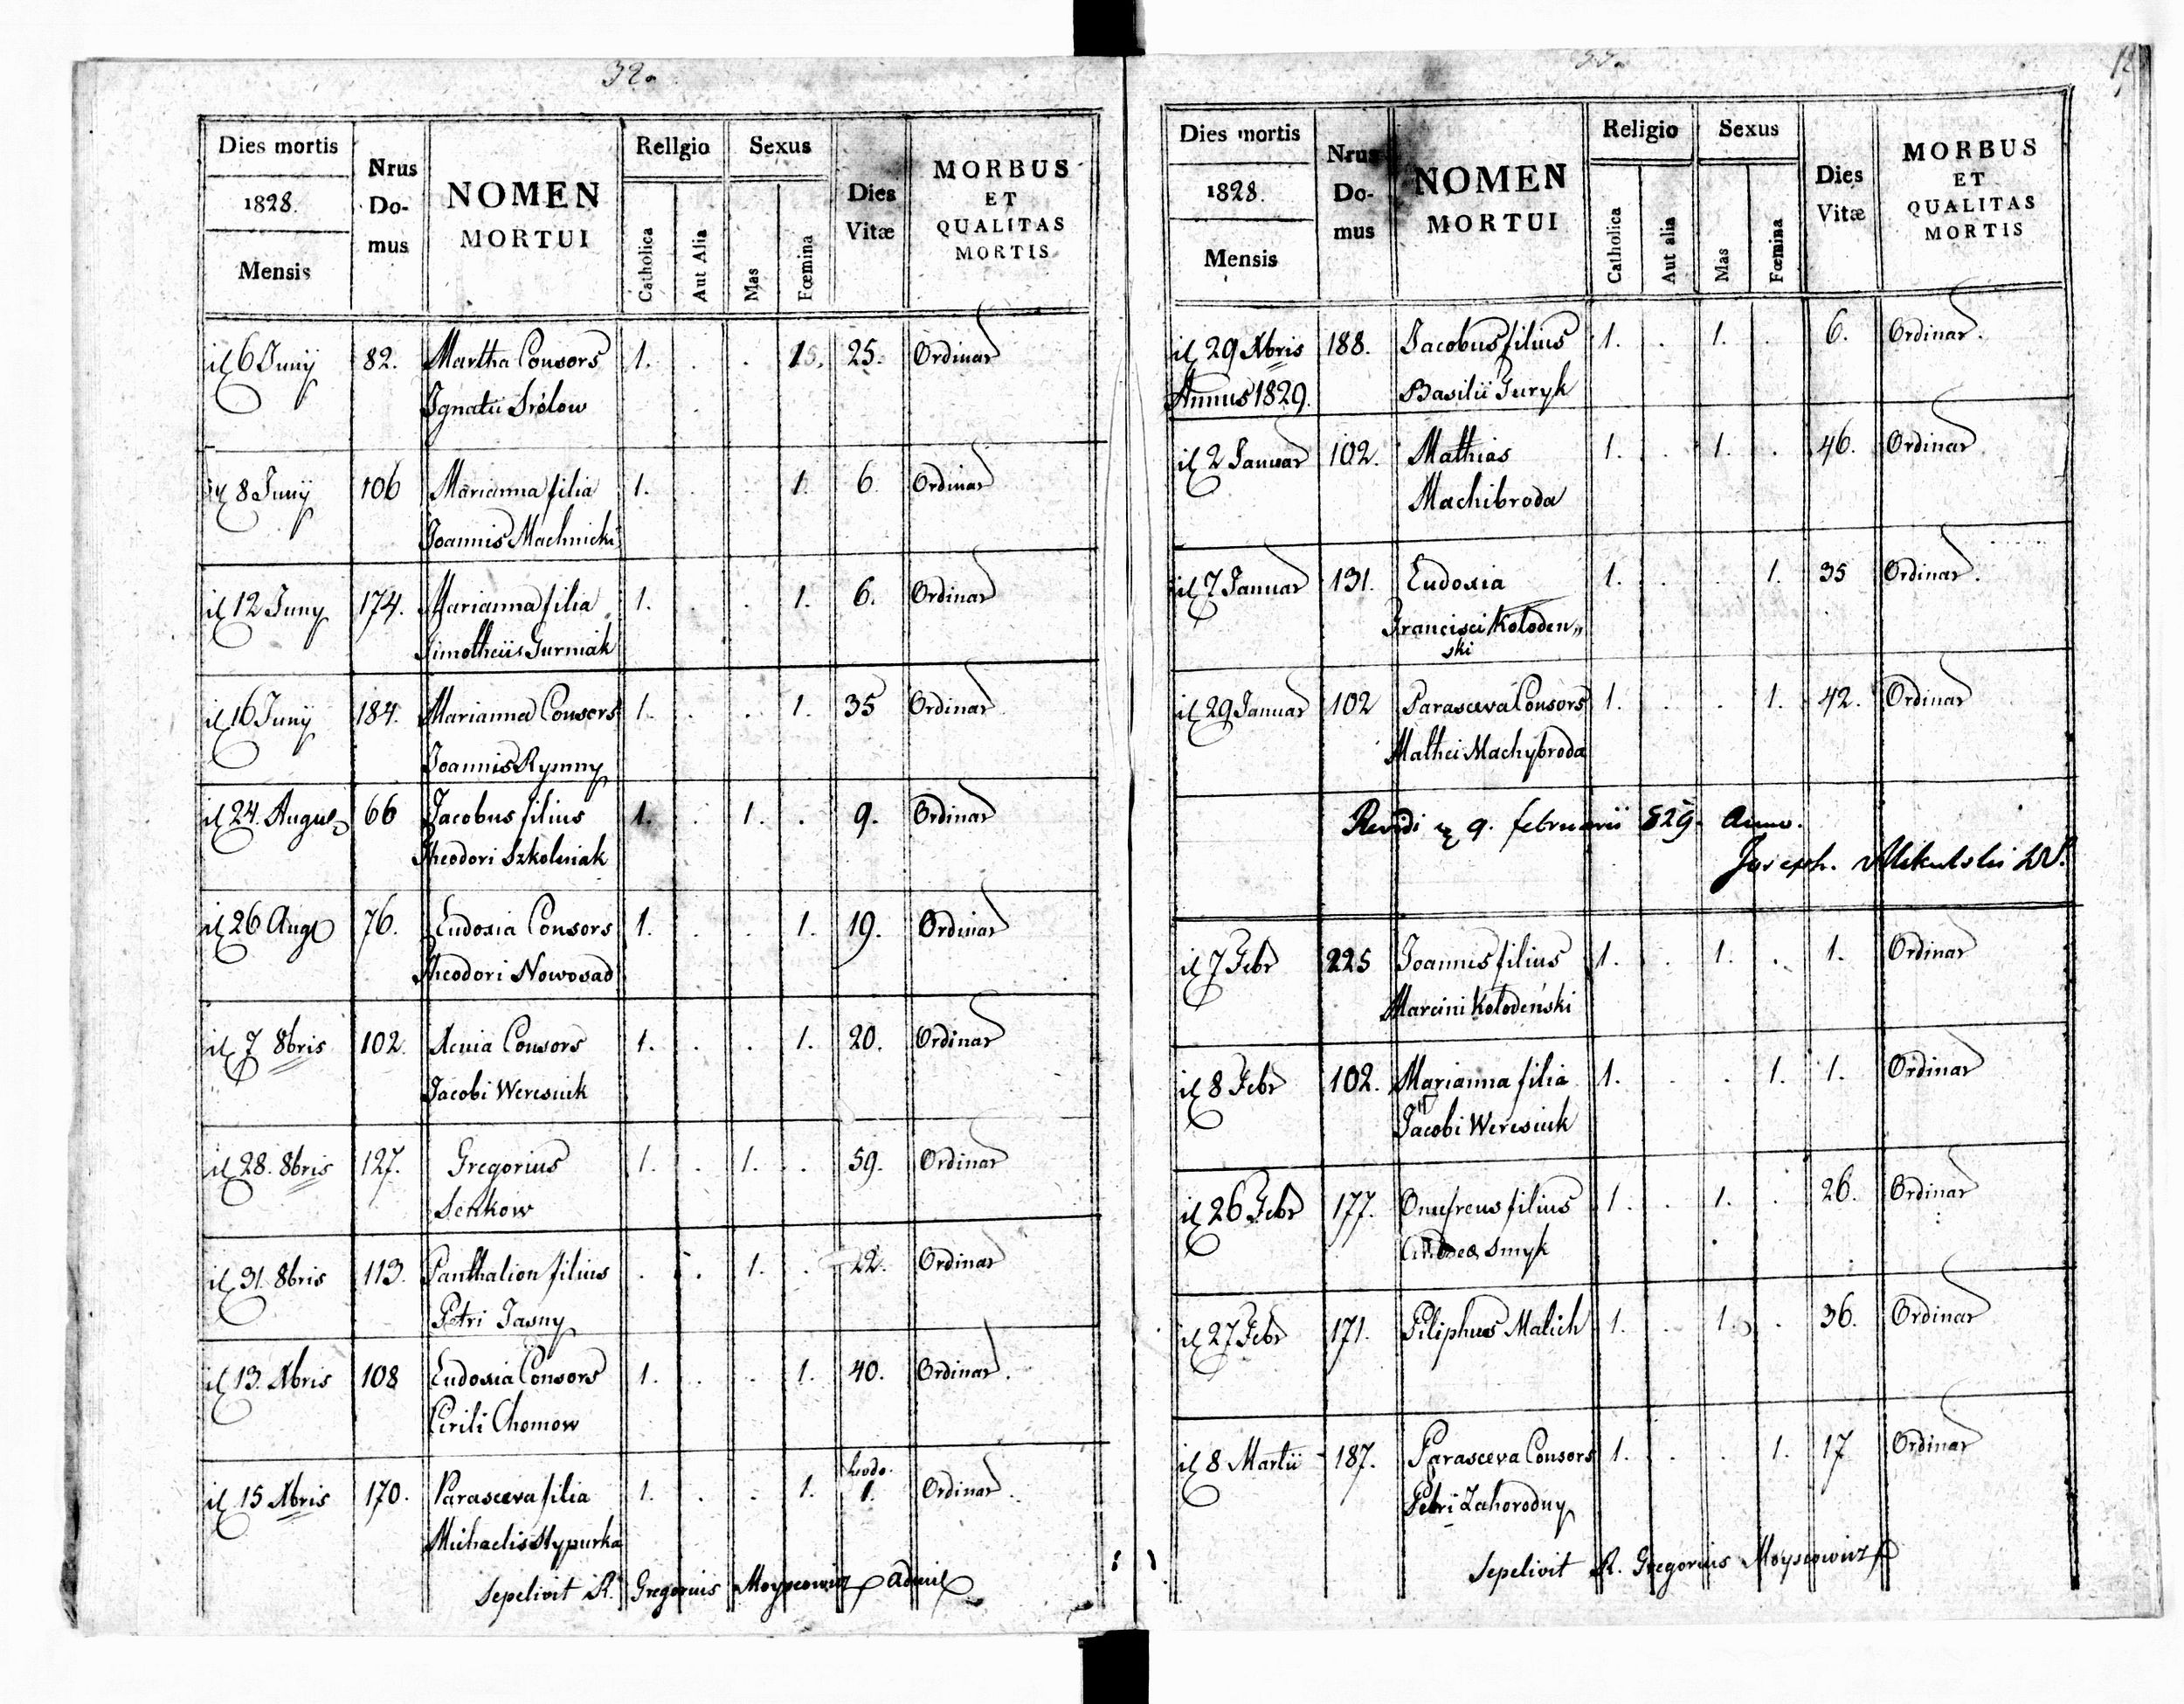 32.
Dies mortis
1828.
Mensis
Nrus
Do-
mus
NOMEN
MORTUI
Religio
Catholica
Aut Alia
Sexus
Mas
Fœmina
Dies
Vitæ
MORBUS
ET
QUALITAS
MORTIS
6 Junij 82. Martha Consors 1. . . 1. 25. Ordinar
Ignatii Srolow
8 Junij 106 Marianna filia 1. . . 1. 6. Ordinar
Joannis Machnicki
12 Juny 174. Marianna filia 1. . . 1. 6. Ordinar
Timotheii Gurniak
16 Junij 184. Marianna Consors 1. . . 1. 35 Ordinar
Joannis Rymny
24. August 66 Jacobus filius 1. . 1. . 9. Ordinar
Theodori Szkolniak
26 Aug 76. Eudoxia Consors 1. . . 1. 19. Ordinar
Theodori Nowosad
7 8bris 102. Xenia Consors 1. . . 1. 20. Ordinar
Jacobi Weresiuk
28. 8bris 127. Gregorius 1. . 1. . 59. Ordinar
Senkow
31. 8bris 113. Panthalion filius . . 1. . 22. Ordinar
Petri Jasny
13. Xbris 108 Eudoxia Consors 1. . . 1. 40. Ordinar.
Cirili Chomow
15 Xbris 170. Parasceva filia 1. . . 1. 1. Ordinar.
Michaelis
Sepelivit R. Gregorius Moyseowicz
Dies mortis
1828.
Mensis
Nrus
Do-
mus
NOMEN
MORTUI
Religio
Catholica
Aut alia
Sexus
Mas
Fœmina
Dies
Vitæ
MORBUS
ET
QUALITAS
MORTIS
29 Xbris 188. Jacobus filius 1. . 1. . 6. Ordinar.
Annus 1829. Basilii Guryk
2 Januar 102. Mathias 1. . 1. . 46. Ordinar
Machibroda
7 Januar 131. Eudoxia 1. . . 1. 35 Ordinar.
Francisci Koloden„
ski
29 Januar 102 Parasceva Consors 1. . . 1. 42. Ordinar
Mathei Machybroda
Revidi 9. februarii 829. Anno.
Joseph. Mikulski
7 Febr 225 Joannes filius 1. . 1. . 1. Ordinar
Marcini Kolodeński
8 Febr 102. Marianna filia 1. . . 1. 1. Ordinar
Jacobi Weresiuk
26 Febr 177. Onufreus filius 1. . 1. . 26. Ordinar
Andreæ Smyk
27 Febr 171. Filiphus Malich 1. . 1. . 36. Ordinar
8 Martii 187. Parasceva Consors 1. . . 1. 17 Ordinar
Petri Zahorodny
Sepelivit R. Gregorius Moyseowicz